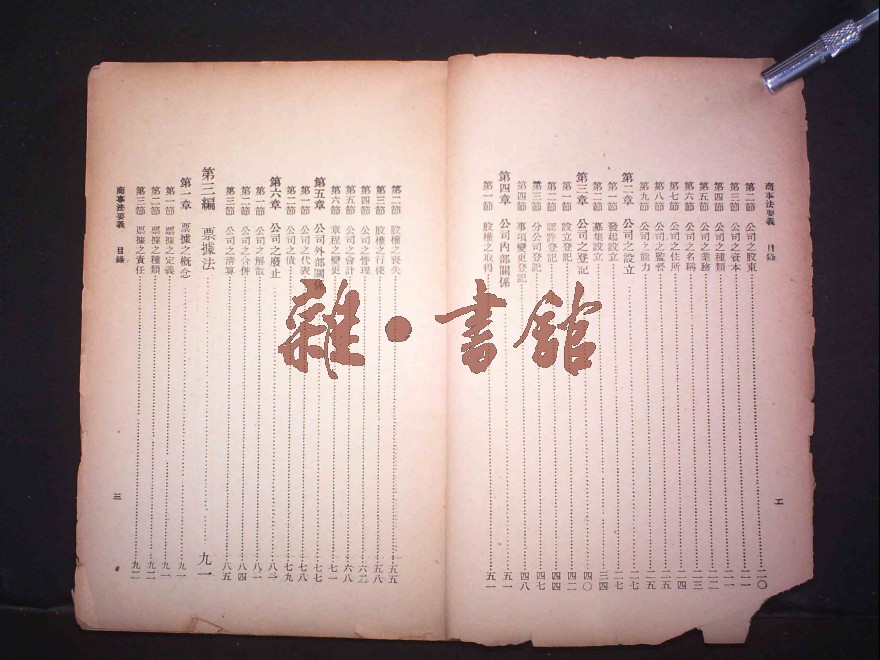 商事法要義 目錄
第二節 公司之股東 二〇
第三節 公司之資本 二一
第四節 公司之種類 二一
第五節 公司之業務 二二
第六節 公司之名稱 二三
第七節 公司之住所 二四
第八節 公司之監督 二五
第九節 公司之能力 二五
第二章 公司之設立 二七
第一節 發起設立 二七
第二節 募集設立 三四
第三章 公司之登記 四〇
第一節 設立登記 四二
第二節 認許登記 四四
第三節 分公司登記 四七
第四節 事項變更登記 四八
第四章 公司內部關係 五一
第一節 股權之取得 五一
第二節 股權之喪失 五五
第三節 股權之行使 五八
第四節 公司之管理 六二
第五節 公司之會計 六八
第六節 章程之變更 七一
第五章 公司外部關係 七七
第一節 公司之代表 七八
第二節 公司之債 七九
第六章 公司之廢止 八二
第一節 公司之解散 八二
第二節 公司之合併 八四
第三節 公司之清算 八五
第三編 票據法 九一
第一章 票據之概念 九一
第一節 票據之定義 九一
第二節 票據之種類 九二
第三節 票據之責任 九二
商事法要義 目錄
三
雜·書館